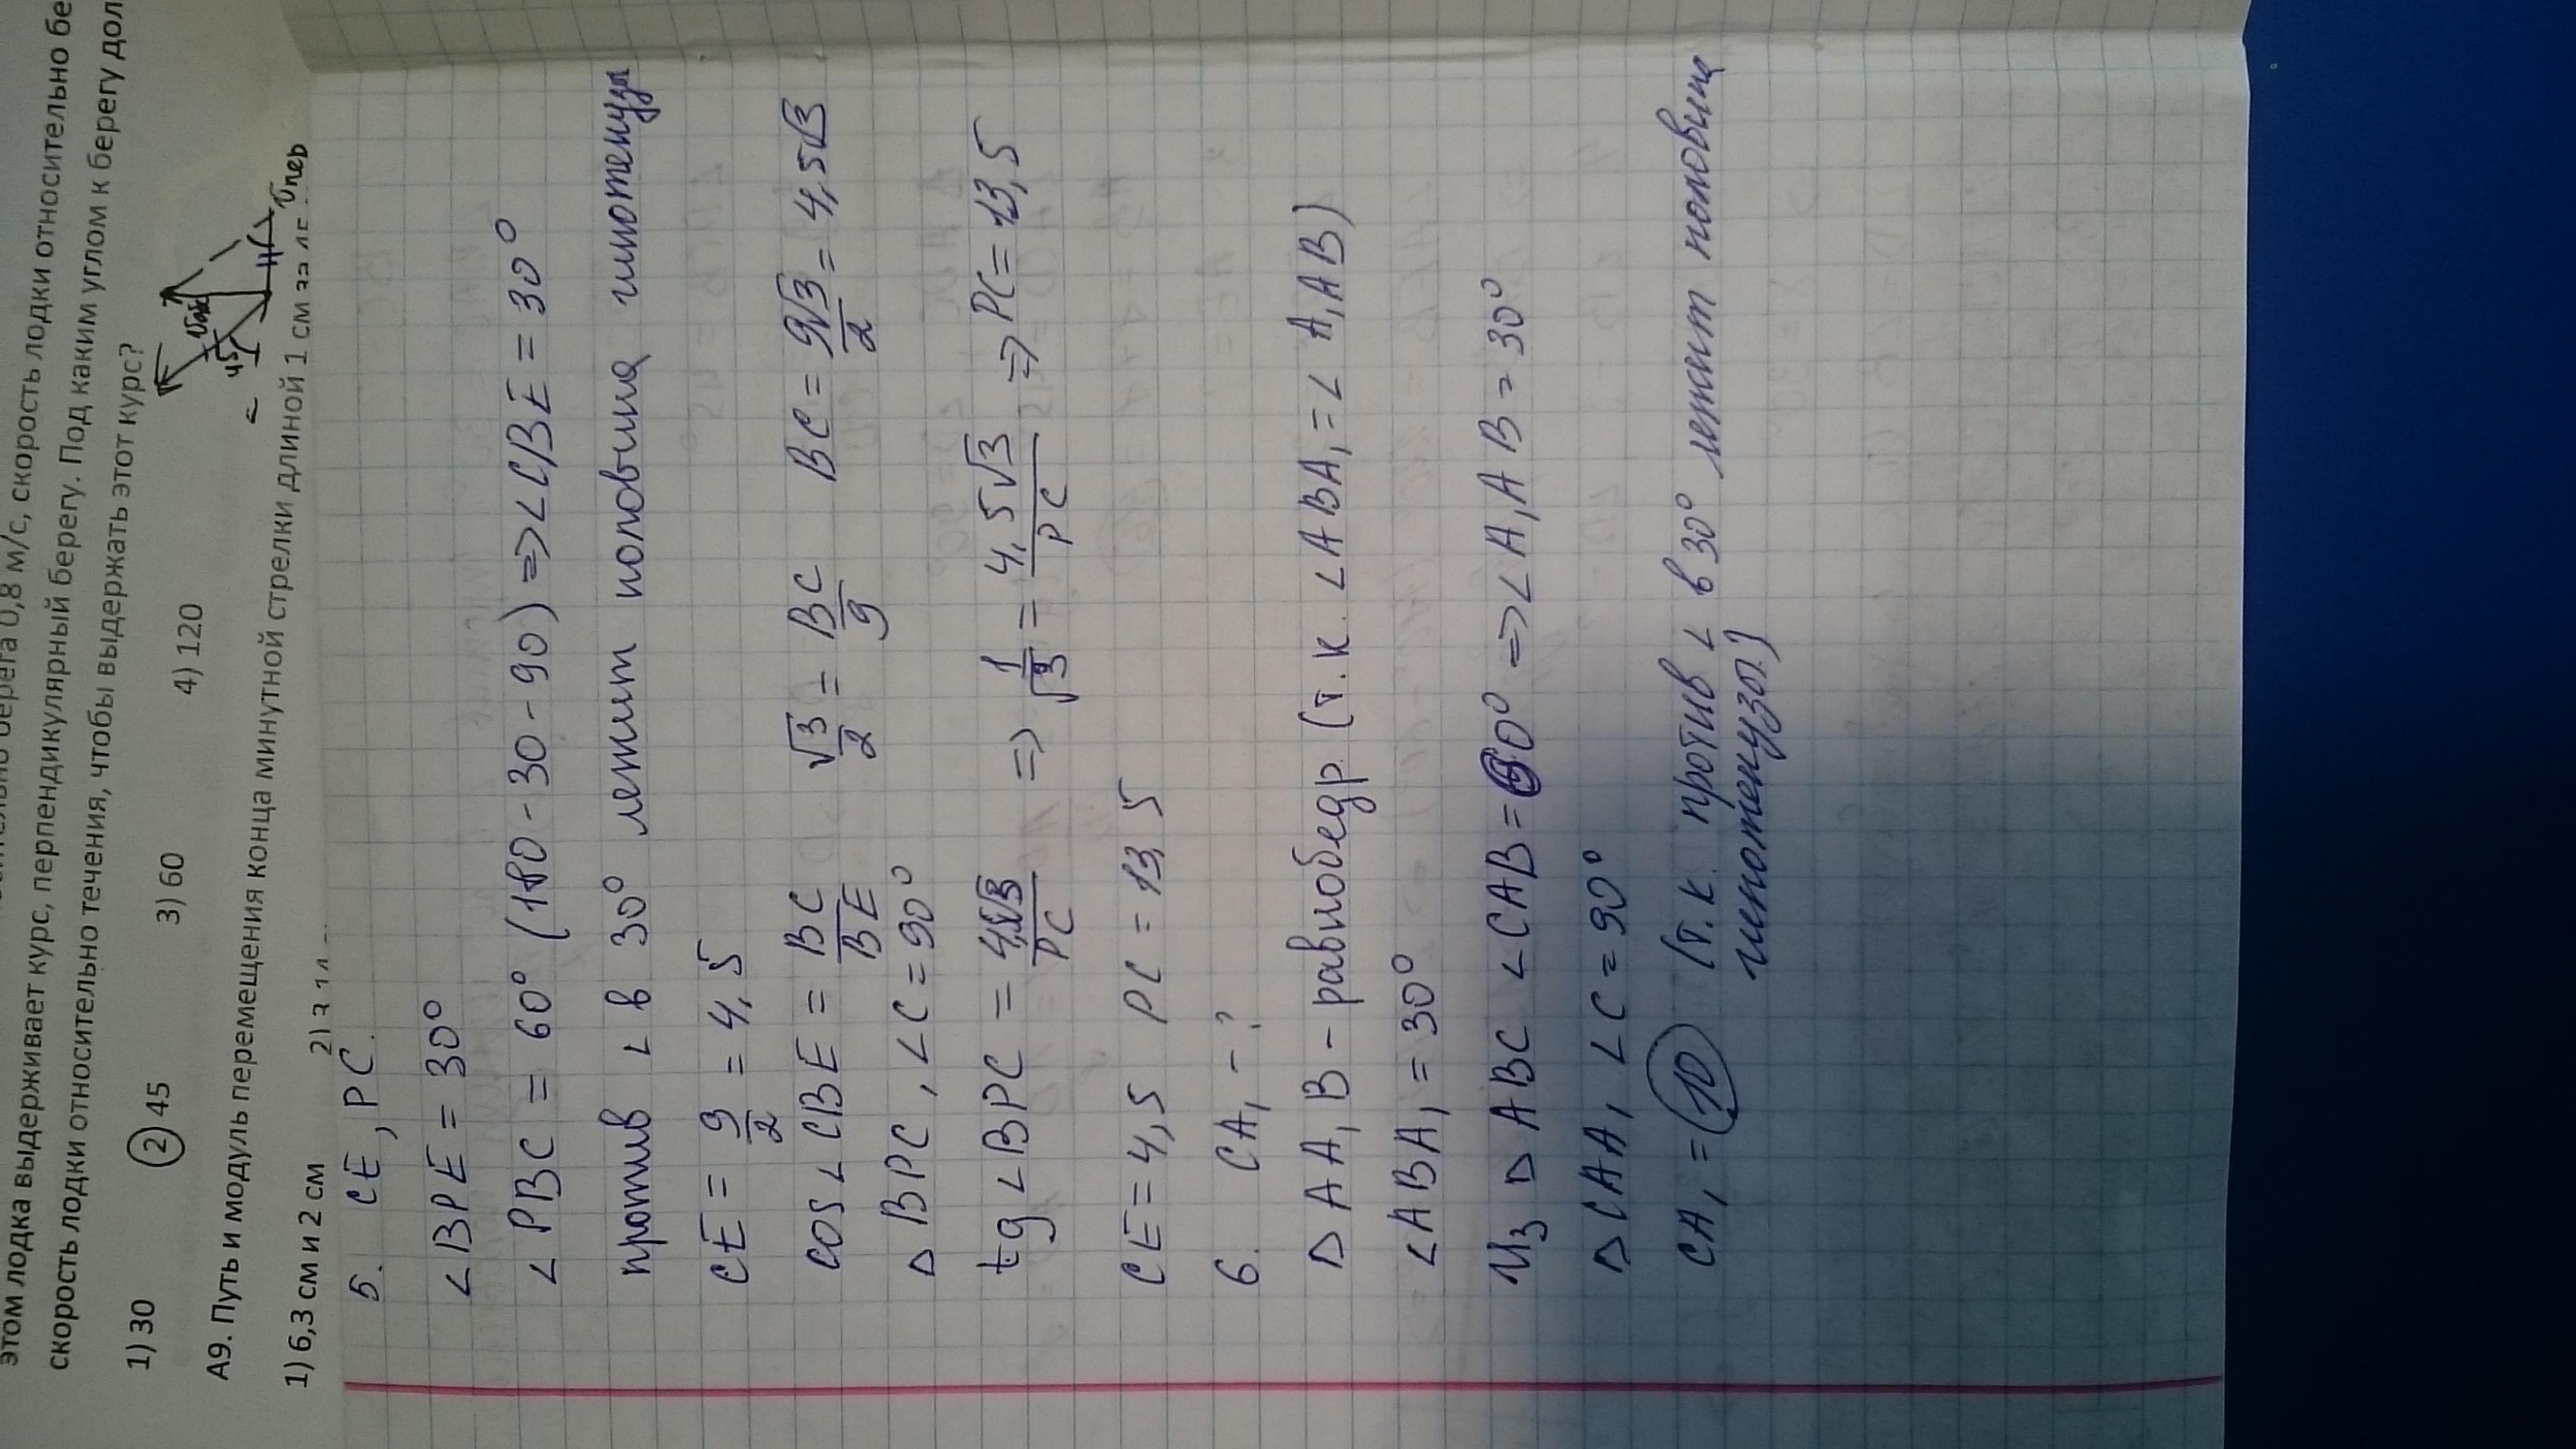 этом лодка выдерживает курс, перпендикулярный берегу. Под каким углом к берегу дол
скорость лодки относительно течения, чтобы выдержать этот курс?
1) 30 2) 45 3) 60 4) 120
45
А9. Путь и модуль перемещения конца минутной стрелки длиной 1 см за
1) 6,3 см и 2 см 2)
υпер
5. CE, PC.
∠BPE = 30°
∠PBC = 60° (180-30-90) => ∠CBE = 30°
против ∠ в 30° лежит половина гипотенузы
CE = 9/2 = 4,5
cos∠CBE = BC/BE √3/2 = BC/9 BC = 9√3/2 = 4,5√3
△BPC, ∠C = 90°
tg∠BPC = 4,5√3/PC => 1/√3 = 4,5√3/PC => PC = 13,5
CE = 4,5 PC = 13,5
6. CA₁ - ?
△AA₁B - равнобедр. (т.к. ∠ABA₁ = ∠A₁AB)
∠ABA₁ = 30°
Из △ABC ∠CAB = 60° => ∠A₁AB = 30°
△CAA₁ ∠C = 90°
CA₁ = 10 (т.к. против ∠ в 30° лежит половина
гипотенузы)